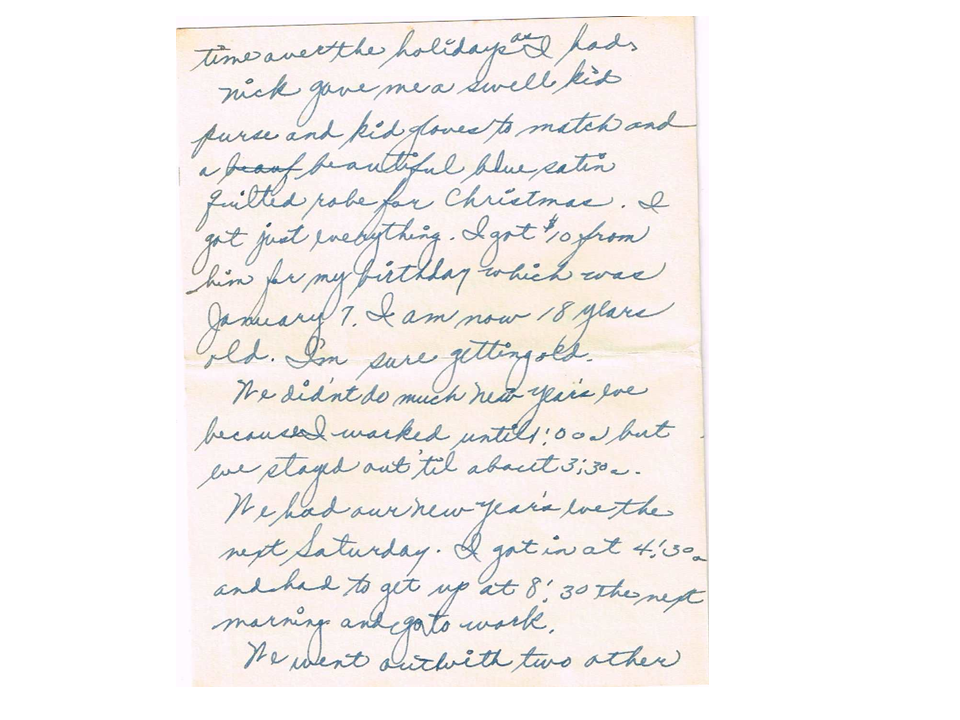 time over the holidays as I had.
Nick gave me a swell kid
purse and kid gloves to match and
a beauf beautiful blue satin
quilted robe for Christmas. I
got just everything. I got $10 from
him for my birthday which was
January 7. I am now 18 years
old. I'm sure getting old.
We did'nt do much New Year's eve
because I worked until 1:00a but
we stayed out 'til about 3:30a.
We had our New Year's eve the
next Saturday. I got in at 4:30a
and had to get up at 8:30 the next
morning and go to work.
We went out with two other